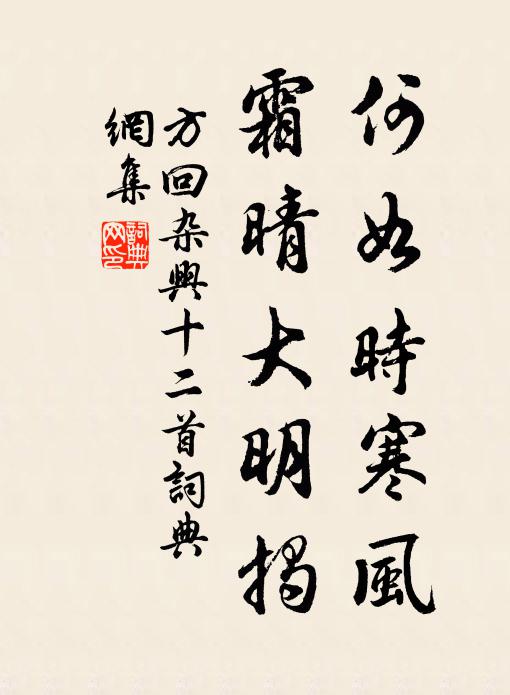 何如時寒風
霜晴大明揭
方回杂興十二首詞典
網集
詞典
网印